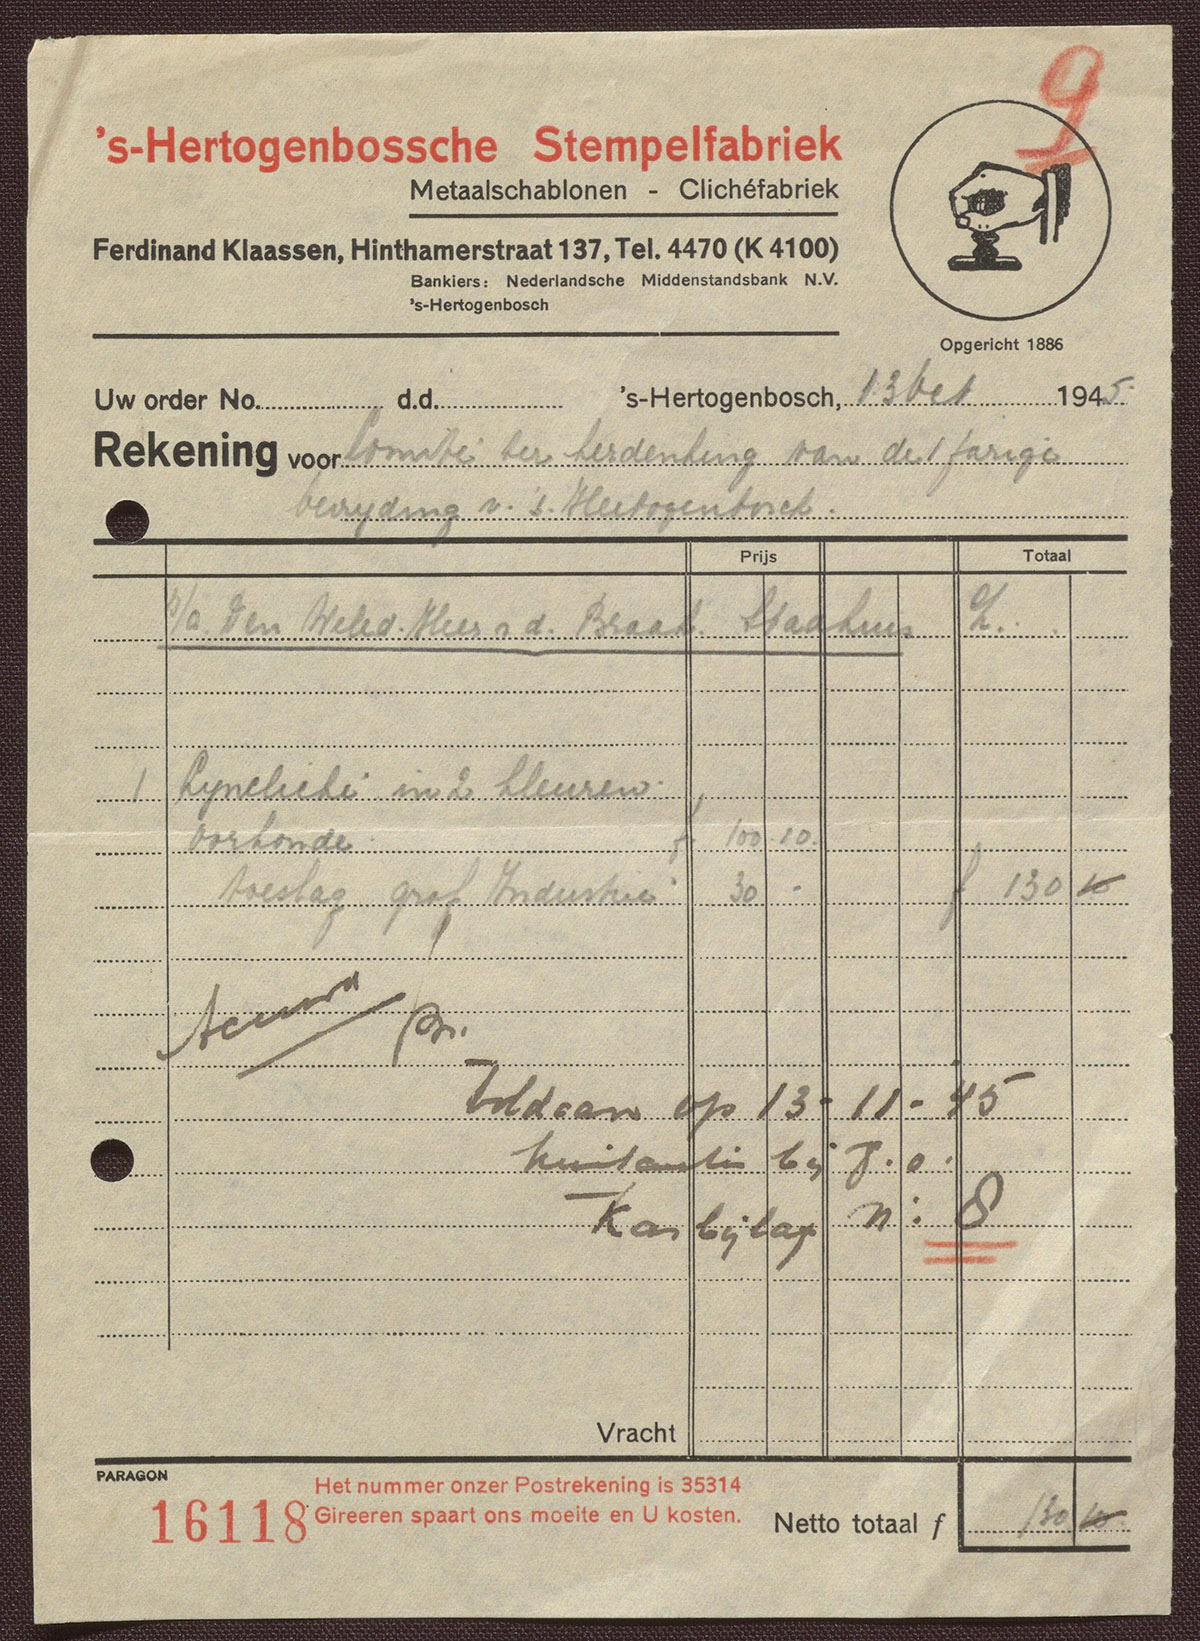 9
's-Hertogenbossche Stempelfabriek
Metaalschablonen - Clichéfabriek
Ferdinand Klaassen, Hinthamerstraat 137, Tel. 4470 (K 4100)
Bankiers: Nederlandsche Middenstandsbank N.V.
's-Hertogenbosch
Opgericht 1886
Uw order No. d.d. 's-Hertogenbosch, 13 Oct 1945
Rekening voor Comité ter herdenking van de 1 jarige
bevryding v. 's. Hertogenbosch.
Prijs Totaal
p/a. Den Weled. Heer v d. Braak. Stadhuis
1 Lyncliché in 2 kleuren
oorkonde f 100.10.
toeslag graf Industrie 30 - f 130 10
Accoord
Voldaan op 13-11-45
kwitantie bij
Kasbijlag N: 8
Vracht
PARAGON
Het nummer onzer Postrekening is 35314
16118 Gireeren spaart ons moeite en U kosten.
Netto totaal f 130 10